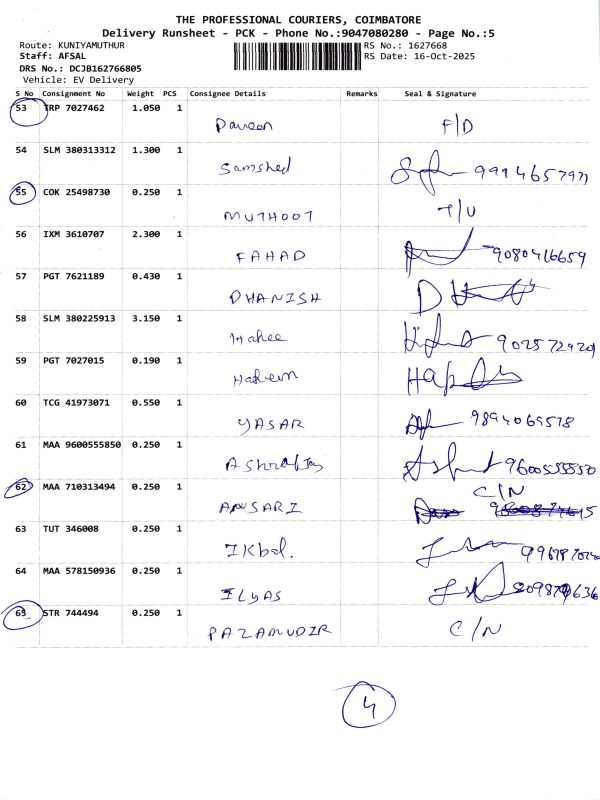 THE PROFESSIONAL COURIERS, COIMBATORE
Delivery Runsheet - PCK - Phone No.:9047080280 - Page No.:5
Route: KUNIYAMUTHUR RS No.: 1627668
Staff: AFSAL RS Date: 16-Oct-2025
DRS No.: DCJB162766805
Vehicle: EV Delivery
S No Consignment No Weight PCS Consignee Details Remarks Seal & Signature
53 TRP 7027462 1.050 1
F/D
54 SLM 380313312 1.300 1
Samshed
55 COK 25498730 0.250 1
MUTHOOT T/U
56 IXM 3610707 2.300 1
FAHAD 9080416659
57 PGT 7621189 0.430 1
DHANISH
58 SLM 380225913 3.150 1
59 PGT 7027015 0.190 1
60 TCG 41973071 0.550 1
YASAR 9894069578
61 MAA 9600555850 0.250 1
62 MAA 710313494 0.250 1 C/N
ANSARI
63 TUT 346008 0.250 1
IKbal.
64 MAA 578150936 0.250 1
ILYAS
65 STR 744494 0.250 1
PAZAMUDIR C/N
4